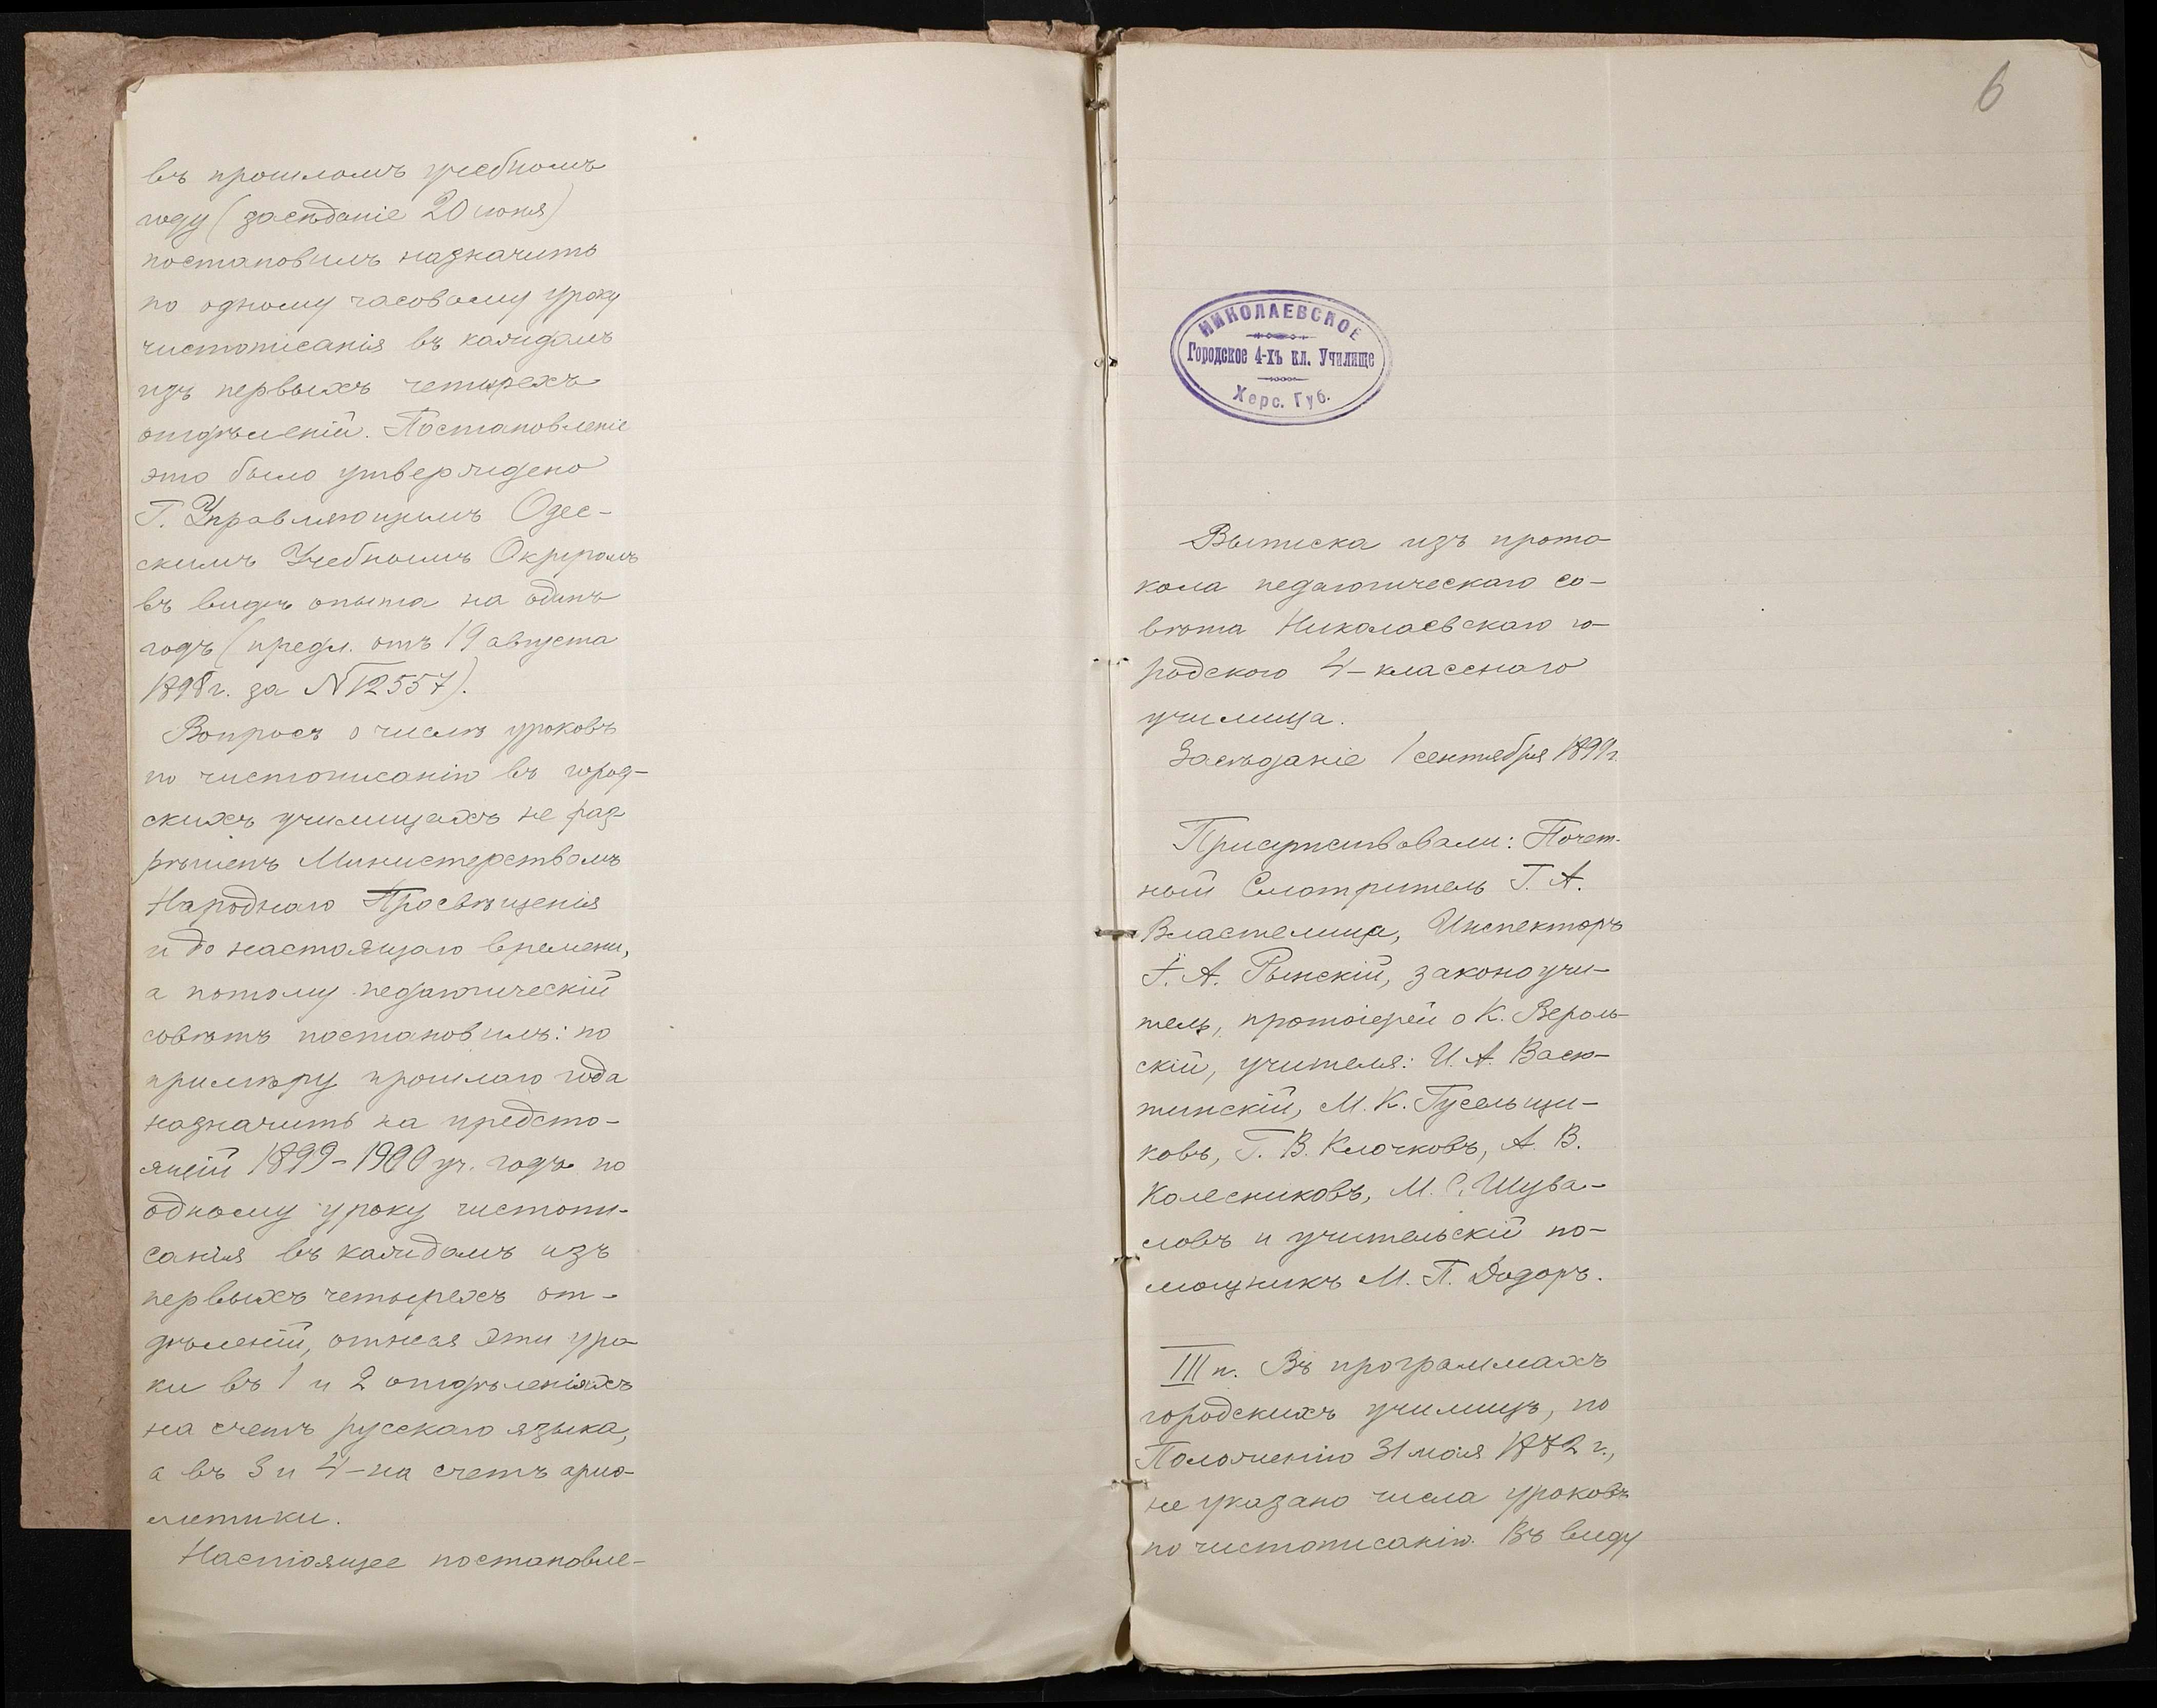 въ прошломъ учебномъ
году (засѣданіе 20 іюня)
постановилъ назначить
по одному часовому уроку
чистописанія въ каждомъ
изъ первыхъ четырехъ
отдѣленій. Постановленіе
это было утверждено
Г. Управляющимъ Одес-
скимъ Учебнымъ Округомъ
въ видѣ опыта на одинъ
годъ (предл. отъ 19 августа
1898 г. за № 12557).
Вопросъ о числѣ уроковъ
по чистописанію въ город-
скихъ училищахъ не раз
рѣшенъ Министерствомъ
Народнаго Просвѣщенія
и до настоящаго времени,
а потому педагогическій
совѣтъ постановилъ: по
примѣру прошлаго года
назначить на предсто-
ящій 1899-1900 уч. годъ по
одному уроку чистопи-
санія въ каждомъ изъ
первыхъ четырехъ от-
дѣленій, относя эти уро
ки въ 1 и 2 отдѣленіяхъ
на счетъ русскаго языка,
а въ 3 и 4 - на счетъ ариѳ-
метики.
Настоящее постановле-
6
НИКОЛАЕВСКОЕ
Городское 4-хъ кл. Училище
Херс. Губ.
Выписка изъ прото
кола педагогическаго со-
вѣта Николаевскаго го-
родского 4-класснаго
училища.
Засѣданіе 1 сентября 1899 г.
Присутствовали: Почет-
ный Смотритель Г. А.
Властелица, Инспекторъ
А. Рынскій, законоучи-
тель, протоіерей о К.
скій, учителя: И. А. Васю-
тинскій, М. К. Гусельщи-
ковъ, Г. В. Клочковъ, А. В.
Колесниковъ, М. С. Шува-
ловъ и учительскій по-
мощникъ М. П. Додоръ.
III п. Въ программахъ
городскихъ училищъ, по
Положенію 31 мая 1872 г.,
не указано числа уроковъ
по чистописанію. Въ виду